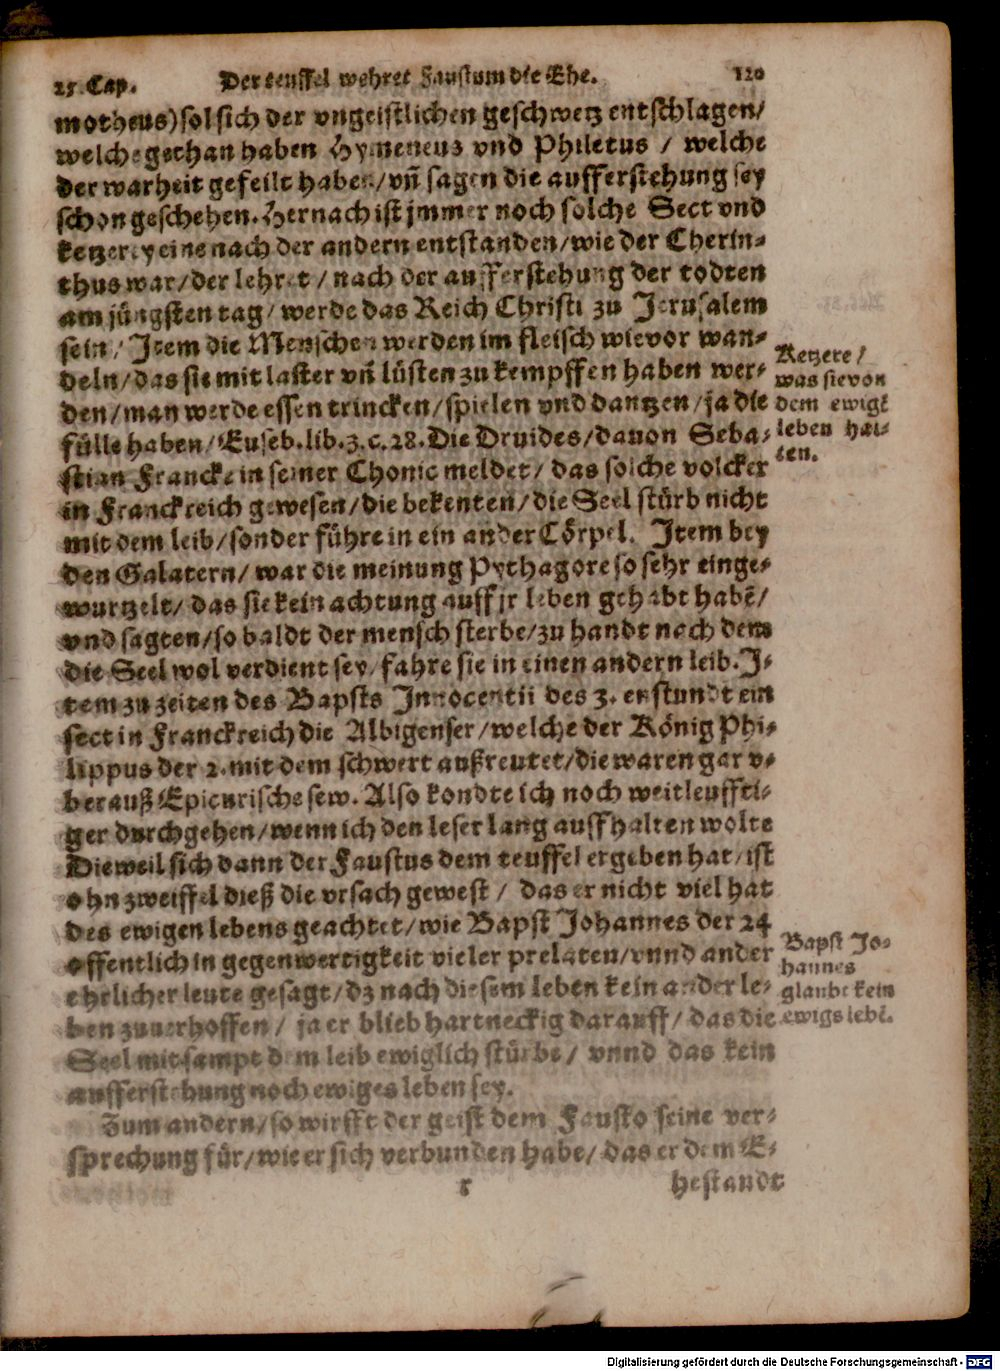 25. Cap. Der teuffel wehret Faustum die Ehe. 120
motheus) sol sich der vngeistlichen geschwetz entschlagen/
welche gethan haben Hymeneus vnd Philetus / welche
der warheit gefeilt haben/vñ sagen die aufferstehung sey
schon geschehen. Hernach ist jmmer noch solche Sect vnd
ketzerey eine nach der andern entstanden/wie der Cherin-
thus war/der lehret / nach der aufferstehung der todten
am jüngsten tag/ werde das Reich Christi zu Jerusalem
sein / Item die Menschen werden im fleisch wie vor wan-
deln/das sie mit laster vñ lüsten zu kempffen haben wer-
den/man werde essen trincken/spielen vnd dantzen/ja die
fülle haben/Euseb.lib.3.c.28. Die Druides/dauon Seba-
stian Francke in seiner Chonic meldet/ das solche volcker
in Franckreich gewesen/die bekenten/die Seel stürb nicht
mit dem leib/sonder führe in ein ander Cörpel. Item bey
den Galatern/ war die meinung Pythagore so sehr einge-
wurtzelt/ das sie kein achtung auff jr leben gehabt habē/
vnd sagten/so baldt der mensch sterbe/zu handt nach dem
die Seel wol verdient sey/fahre sie in einen andern leib. J-
tem zu zeiten des Bapsts Innocentii des 3. enstundt ein
sect in Franckreich die Albigenser/welche der König Phi-
lippus der 2. mit dem schwert außreutet/die waren gar v-
berauß Epicurische sew. Also kondte ich noch weitleuffti-
ger durchgehen/wenn ich den leser lang auffhalten wolte
Dieweil sich dann der Faustus dem teuffel ergeben hat/ist
ohn zweiffel dieß die vrsach gewest / das er nicht viel hat
des ewigen lebens geachtet/wie Bapst Johannes der 24
offentlich in gegenwertigkeit vieler prelaten/vnnd ander
ehrlicher leute gesagt/dz nach diesem leben kein ander le-
ben zuuerhoffen/ ja er blieb hartneckig darauff/ das die
Seel mitsampt dem leib ewiglich stürbe/ vnnd das kein
aufferstehung noch ewiges leben sey.
Zum andern/so wirfft der geist dem Fausto seine ver-
sprechung für/wie er sich verbunden habe/ das er dem E-
r hestandt
Ketzere /
was sie von
dem ewigē
leben hal-
ten.
Bapst Jo-
hannes
glaubt kein
ewigs lebē.
Digitalisierung gefördert durch die Deutsche Forschungsgemeinschaft - DFG